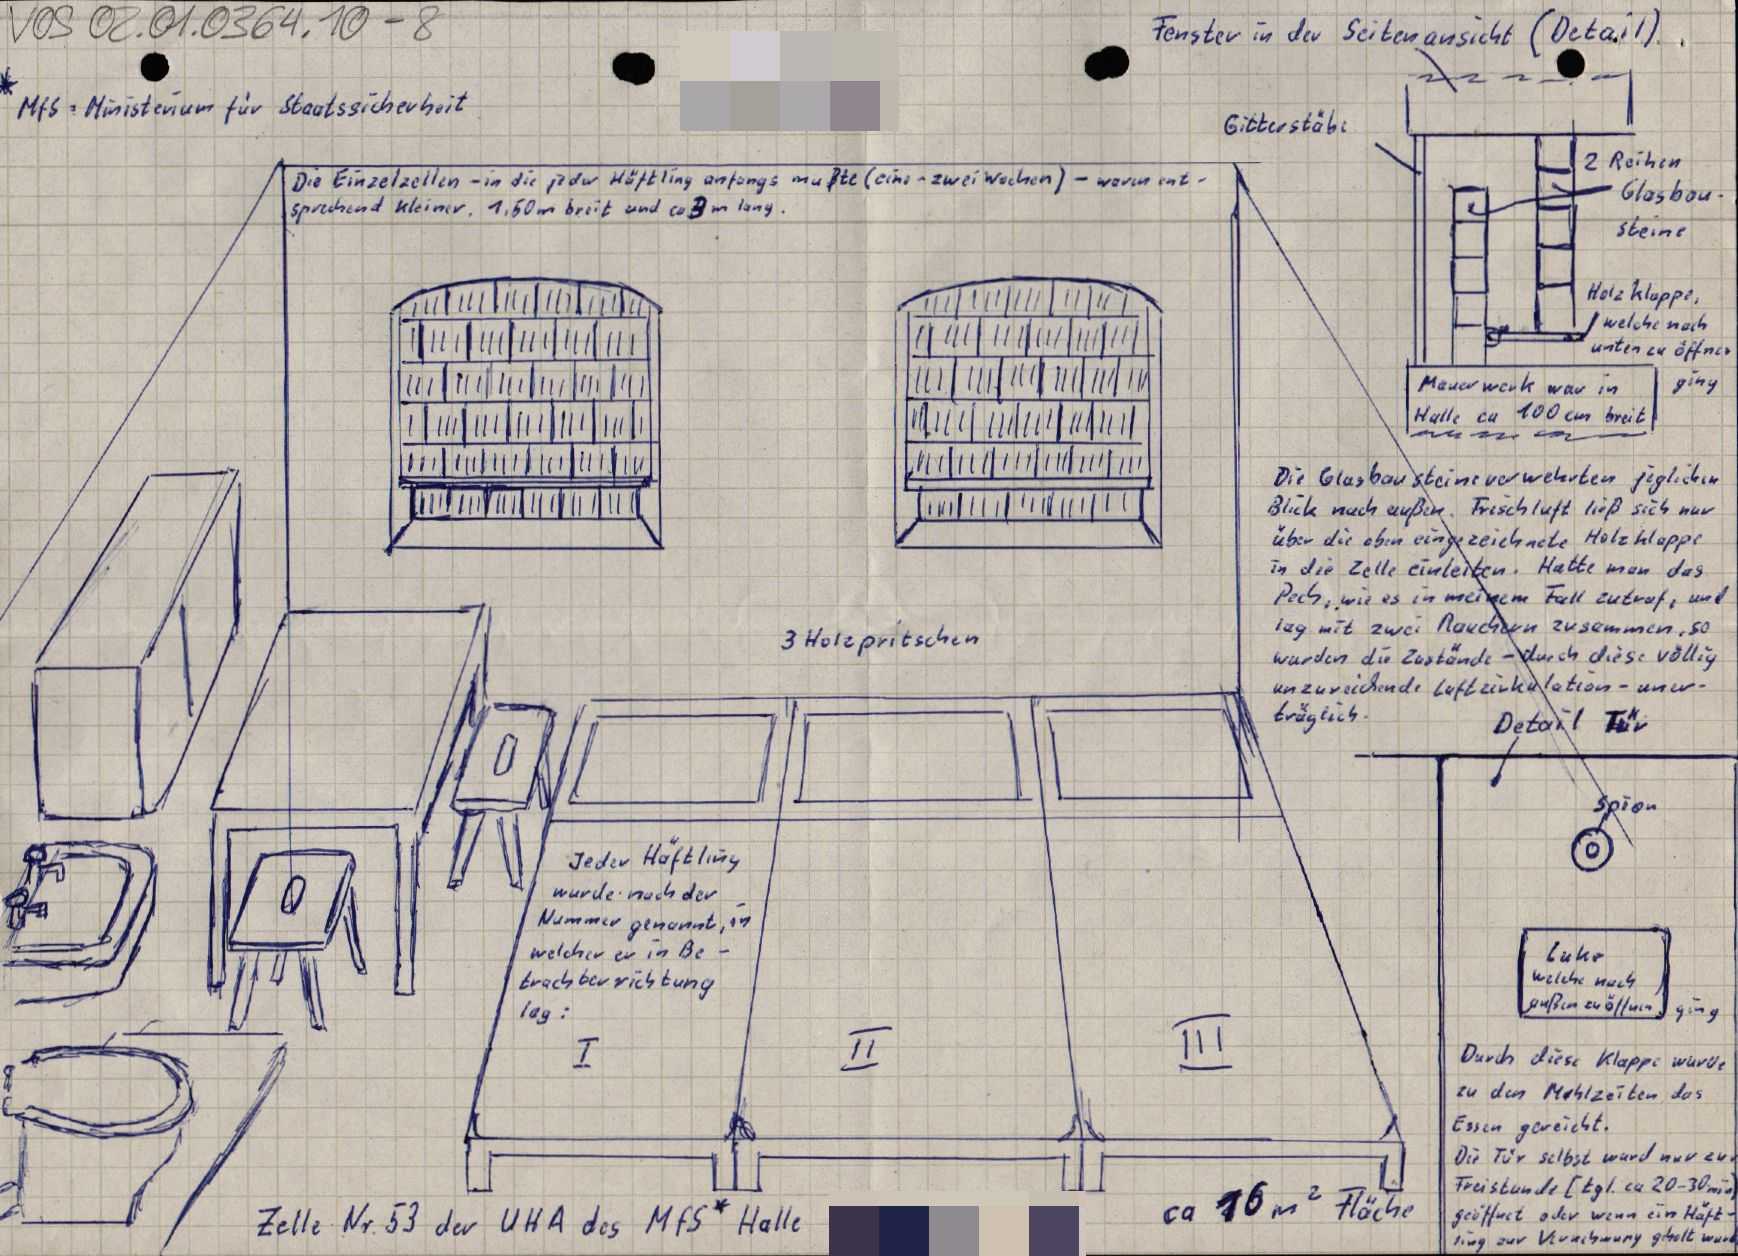 VOS 02.01.0364.10-8
Fenster in der Seitenansicht (Detail)
* MfS = Ministerium für Staatssicherheit
Gitterstäbe
2 Reihen
Glasbau-
steine
Holzklappe,
welche nach
unten zu öffnen
ging
Mauerwerk war in
Halle ca 100 cm breit
Die Einzelzellen - in die jeder Häftling anfangs mußte (eine - zwei Wochen) - waren ent-
sprechend kleiner. 1,50 m breit und ca 3 m lang.
Die Glasbausteine verwehrten jeglichen
Blick nach außen. Frischluft ließ sich nur
über die oben eingezeichnete Holzklappe
in die Zelle einleiten. Hatte man das
Pech, wie es in meinem Fall zutraf, und
lag mit zwei Rauchern zusammen, so
wurden die Zustände - durch diese völlig
unzureichende Luftzirkulation - uner-
träglich.
3 Holzpritschen
Detail Tür
Spion
Jeder Häftling
wurde nach der
Nummer genannt, in
welcher er in Be-
trachterrichtung
lag:
I
II
III
Luke
welche nach
außen zu öffnen
ging
Durch diese Klappe wurde
zu den Mahlzeiten das
Essen gereicht.
Die Tür selbst ward nur zur
Freistunde [tgl. ca 20-30 min]
geöffnet oder wenn ein Häft-
ling zur Vernehmung geholt wurde
Zelle Nr. 53 der UHA des MfS* Halle
ca 16 m² Fläche